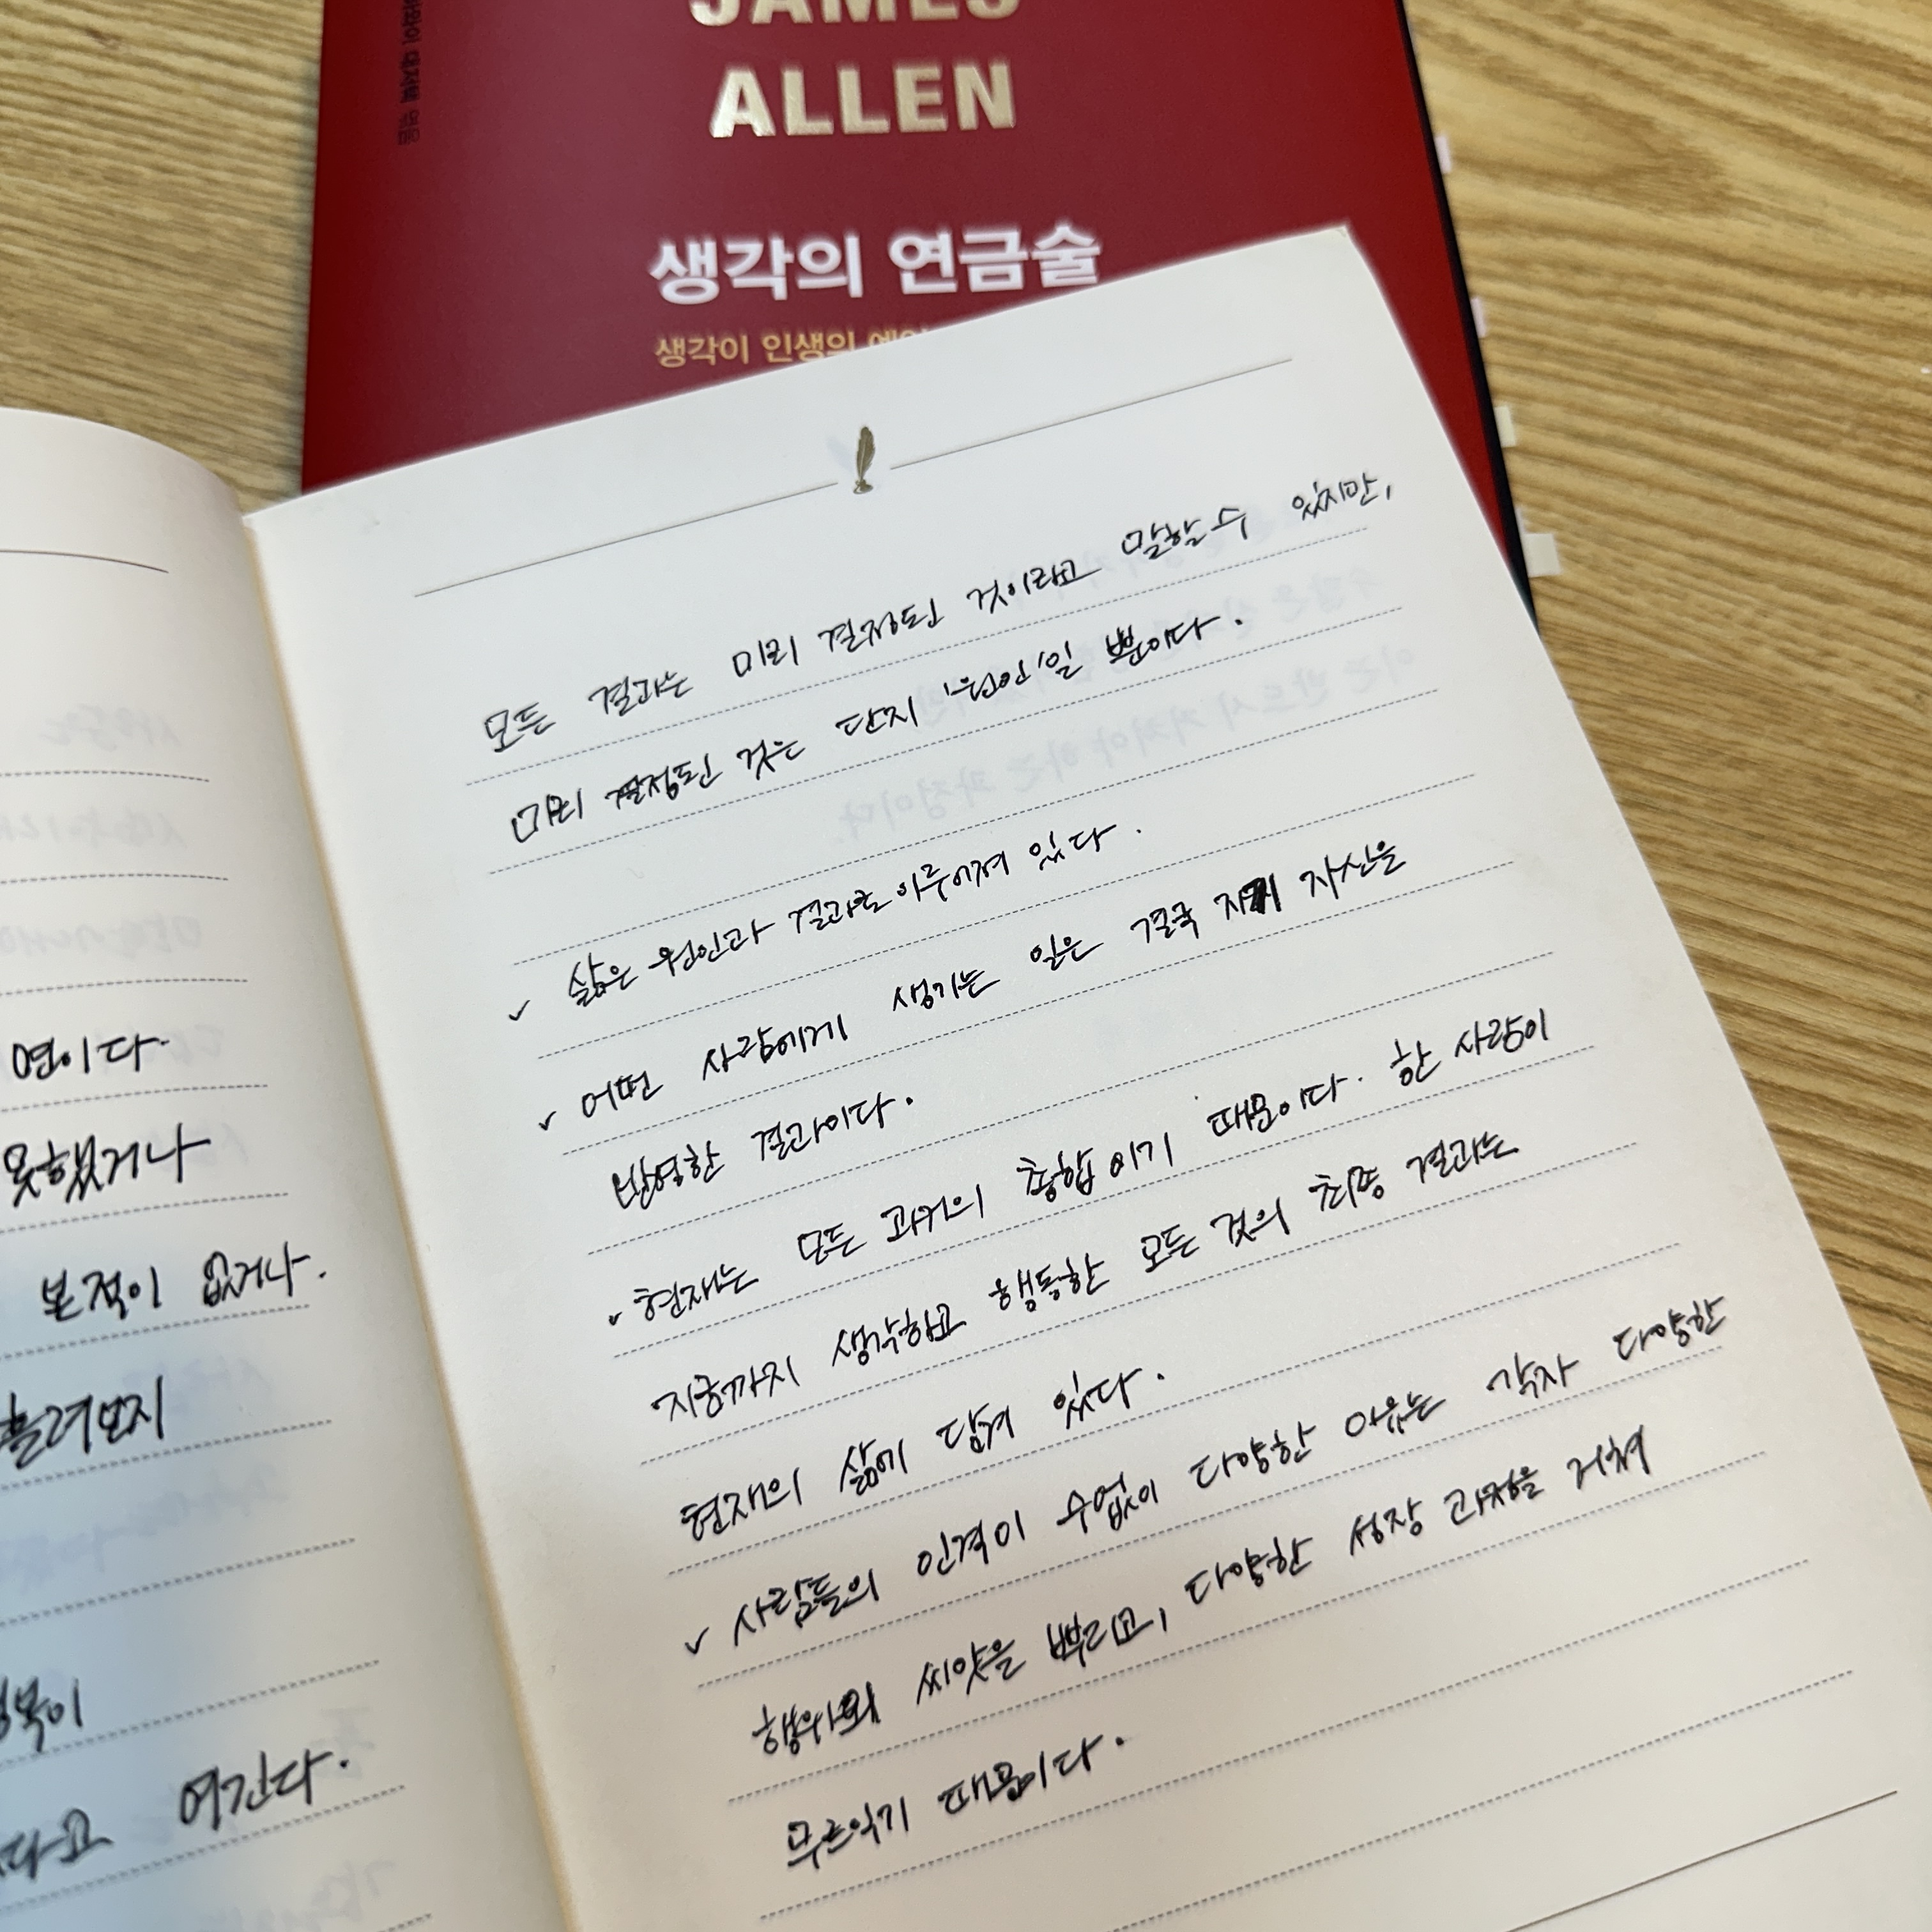 JAMES
ALLEN
생각의 연금술
생각이 인생의
모든 결과는 미리 결정된 것이라고 말할 수 있지만,
미리 결정된 것은 단지 '원인'일 뿐이다.
✓ 삶은 원인과 결과로 이루어져 있다.
✓ 어떤 사람에게 생기는 일은 결국 자기 자신을
반영한 결과이다.
✓ 현재는 모든 과거의 총합이기 때문이다. 한 사람이
지금까지 생각하고 행동한 모든 것의 최종 결과는
현재의 삶에 담겨 있다.
✓ 사람들의 인격이 수없이 다양한 이유는 각자 다양한
행위의 씨앗을 뿌리고, 다양한 성장 과정을 거쳐
무르익기 때문이다.
연이다.
못했거나
본 적이 없거나.
흘려보지
복이
다고 여긴다.